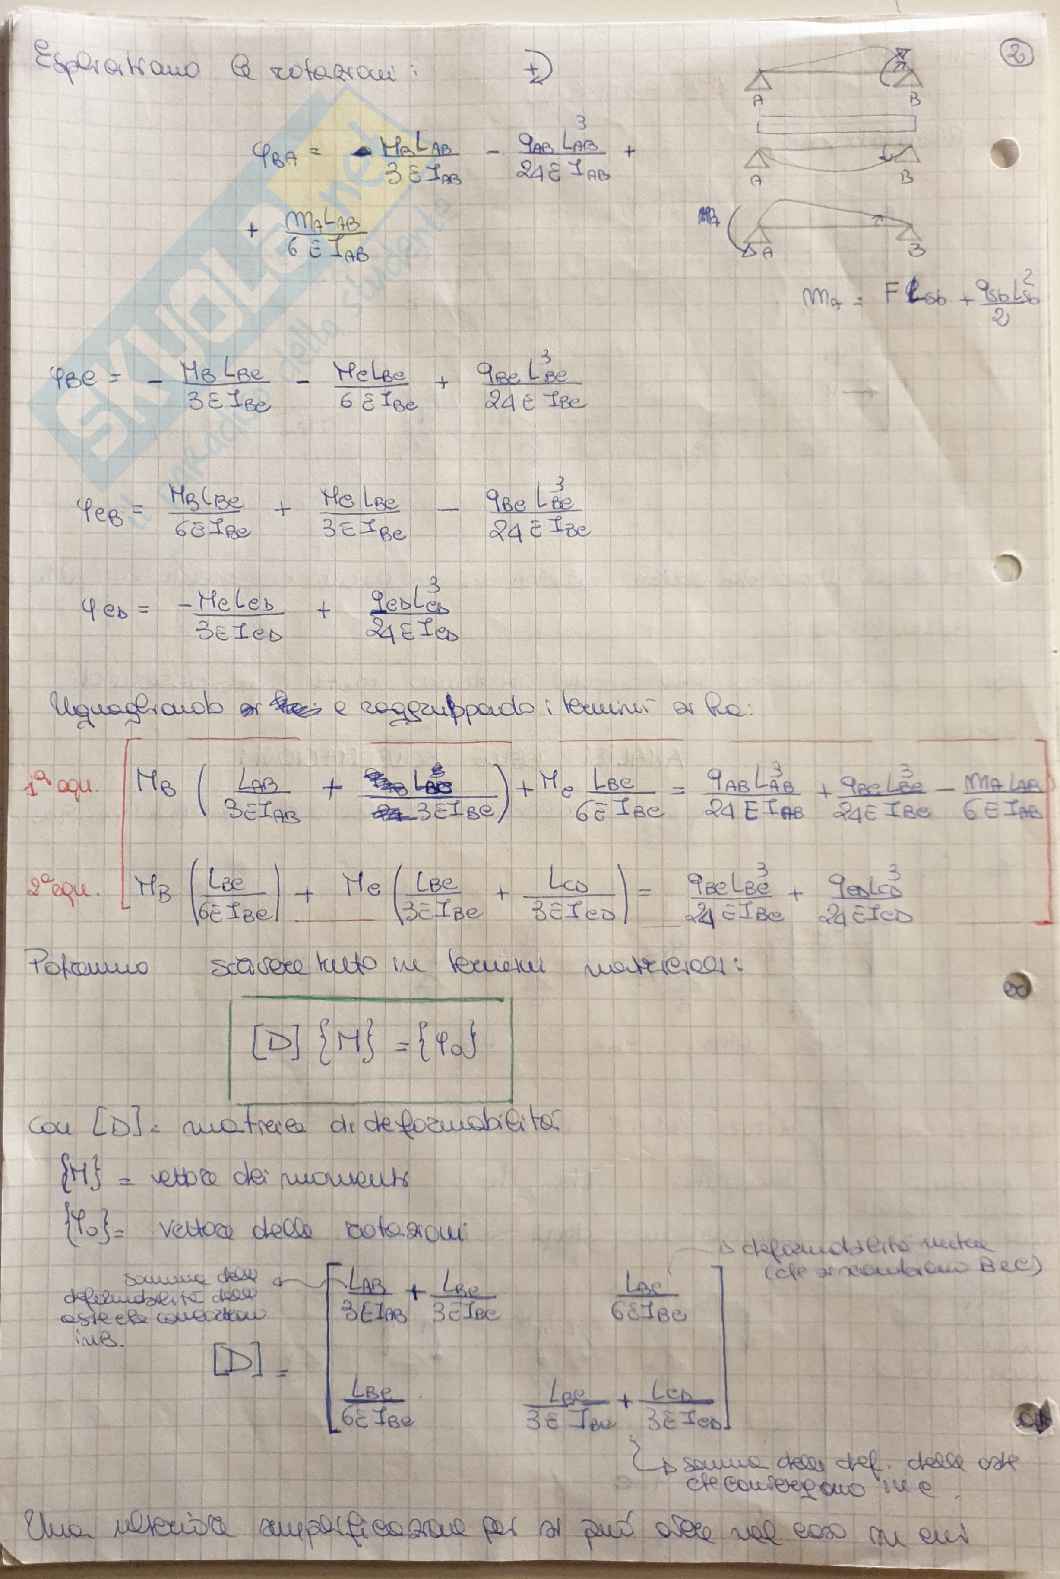 Esplicitiamo le rotazioni: +
2
A B
φBA = - MB LAB / 3EIAB - qAB LAB³ / 24EIAB +
A B
+ mA LAB / 6EIAB
mA A B
mA = F Lsb + qsb Lsb² / 2
φBC = - MB LBC / 3EIBC - MC LBC / 6EIBC + qBC LBC³ / 24EIBC
φCB = MB LBC / 6EIBC + MC LBC / 3EIBC - qBC LBC³ / 24EIBC
φCD = - MC LCD / 3EICD + qCD LCD³ / 24EICD
Uguagliando e raggruppando i termini si ha:
1ª equ. MB ( LAB / 3EIAB + LBC / 3EIBC ) + MC LBC / 6EIBC = qAB LAB³ / 24EIAB + qBC LBC³ / 24EIBC - mA LAB / 6EIAB
2ª equ. MB ( LBC / 6EIBC ) + MC ( LBC / 3EIBC + LCD / 3EICD ) = qBC LBC³ / 24EIBC + qCD LCD³ / 24EICD
Potremmo scrivere tutto in termini matriciali:
[D] {M} = {φo}
con [D] = matrice di deformabilità
{M} = vettore dei momenti
{φo} = vettore delle rotazioni
deformabilità mutua
(che si scambiano B e C)
somma delle
deformabilità delle
aste che convergono
in B.
[D] = [ LAB / 3EIAB + LBC / 3EIBC LBC / 6EIBC
LBC / 6EIBC LBC / 3EIBC + LCD / 3EICD ]
somma delle def. delle aste
che convergono in C.
Una ulteriore semplificazione poi si può avere nel caso in cui
SKUOLA.net
il paradiso dello studente